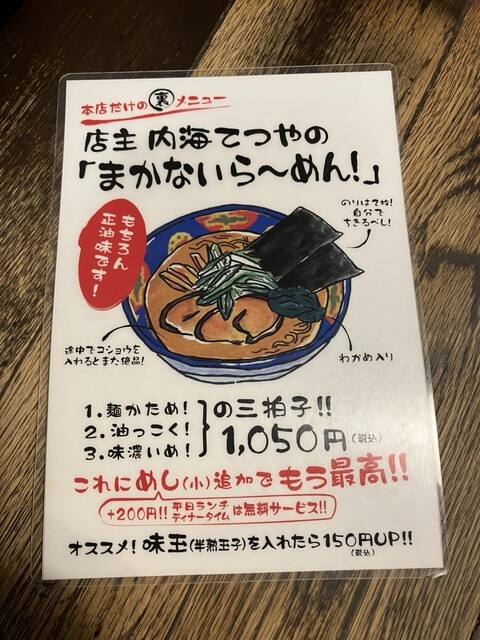 本店だけの裏メニュー
店主 内海てつやの
「まかないら〜めん!」
もちろん
正油味です!
のりは2枚!
自分で
ちぎるべし!
途中でコショウを
入れるとまた絶品!
わかめ入り
1.麺かため!
2.油っこく!
3.味濃いめ!
の三拍子!!
1,050円(税込)
これにめし(小)追加でもう最高!!
+200円!! 平日ランチ
ディナータイム は無料サービス!!
オススメ!味玉(半熟玉子)を入れたら150円UP!!
(税込)